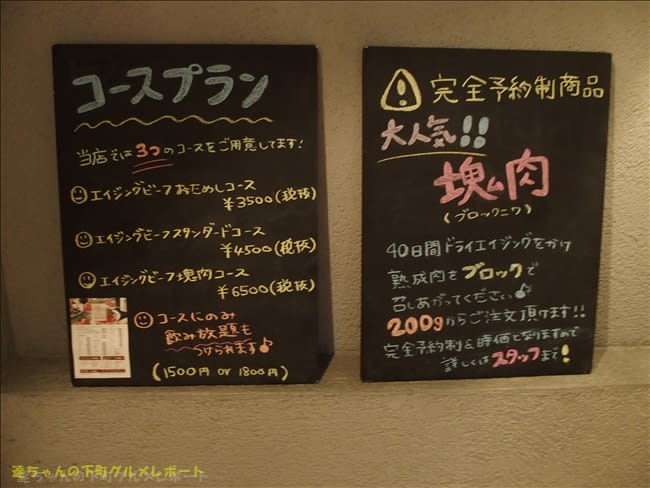 コースプラン
当店では3つのコースをご用意してます!
エイジングビーフおためしコース
¥3500(税抜)
エイジングビーフスタンダードコース
¥4500(税抜)
エイジングビーフ塊肉コース
¥6500(税抜)
コースにのみ
飲み放題も
つけられます♪
(1500円 or 1800円)
完全予約制商品
大人気!!
塊肉
(ブロックニク)
40日間ドライエイジングをかけ
熟成肉をブロックで
召しあがってください♪
200gからご注文頂けます!!
完全予約制&時価となりますので
詳しくはスタッフまで!
達ちゃんの下町グルメレポート